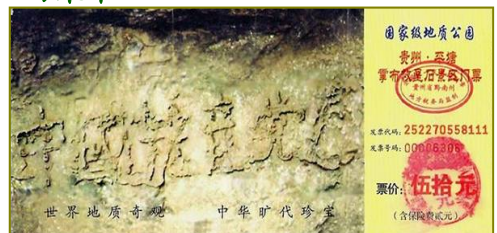 中國共产党
世界地质奇观
中华旷代珍宝
国家级地质公园
贵州·平塘
掌布
景区门票
贵州省黔南州
发票代码:252270558111
发票号码:00006306
票价:伍拾元
(含保险费贰元)